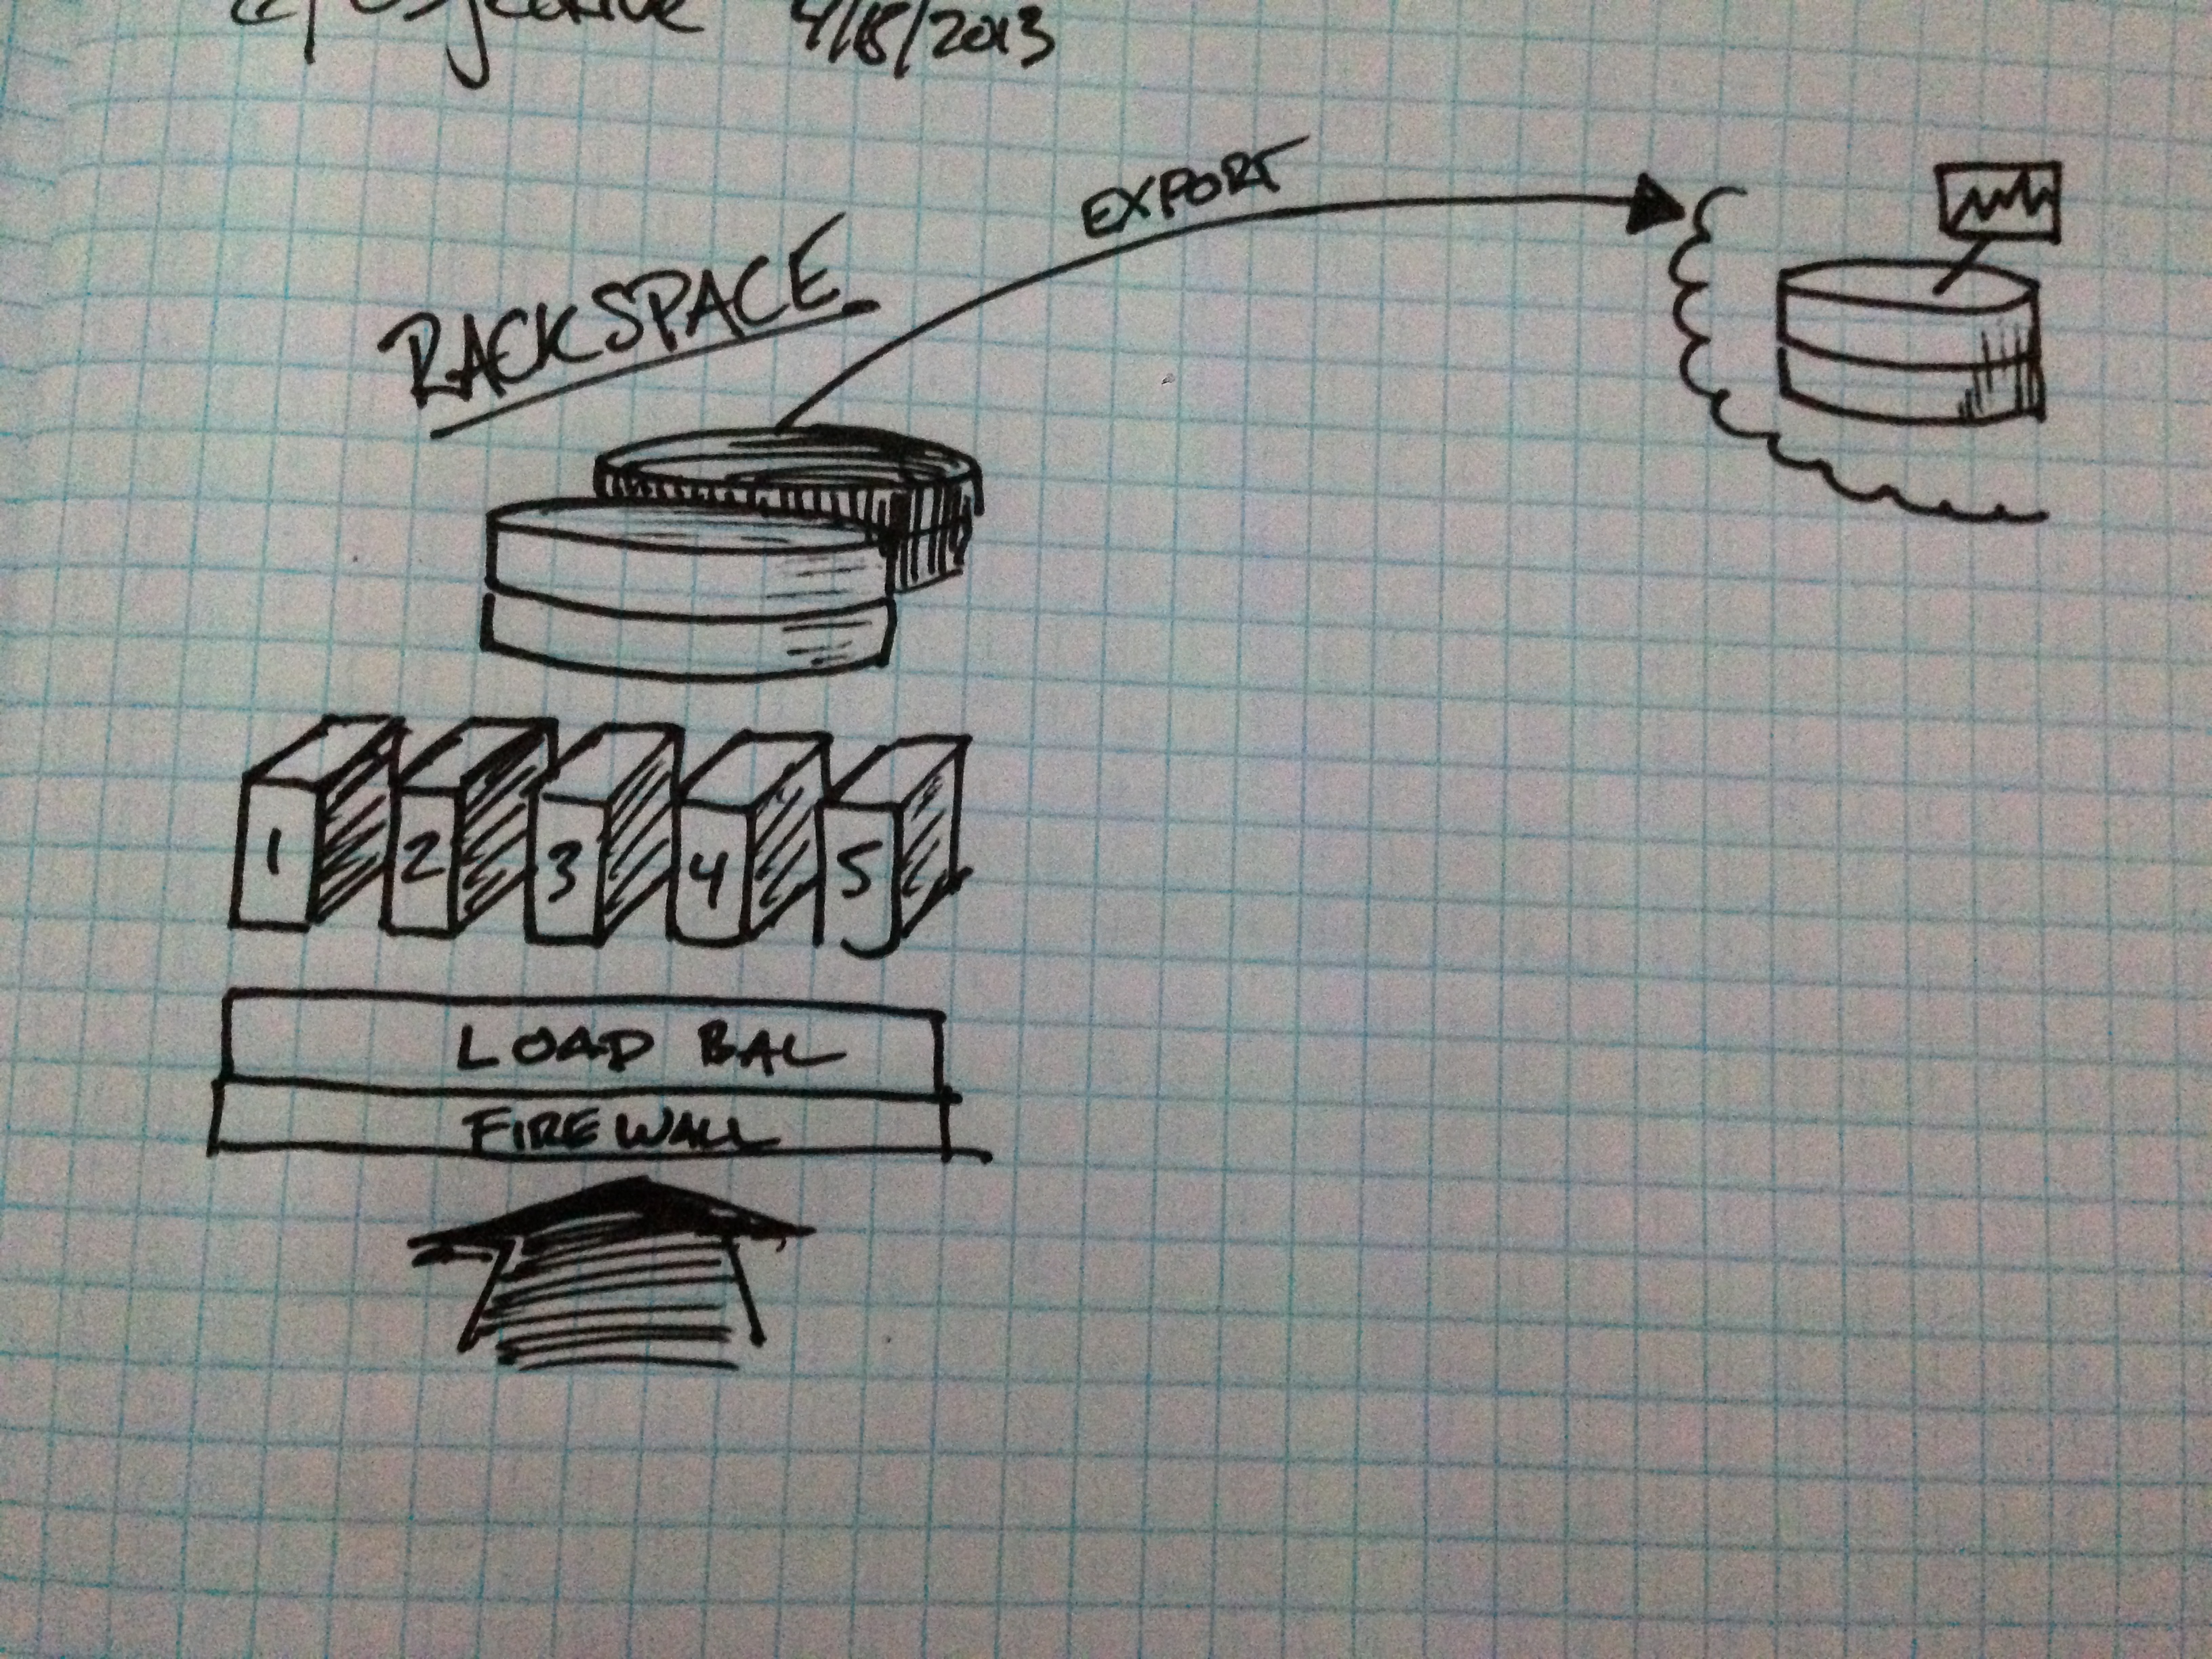 4/18/2013
RACKSPACE
EXPORT
1 2 3 4 5
LOAD BAL
FIREWALL